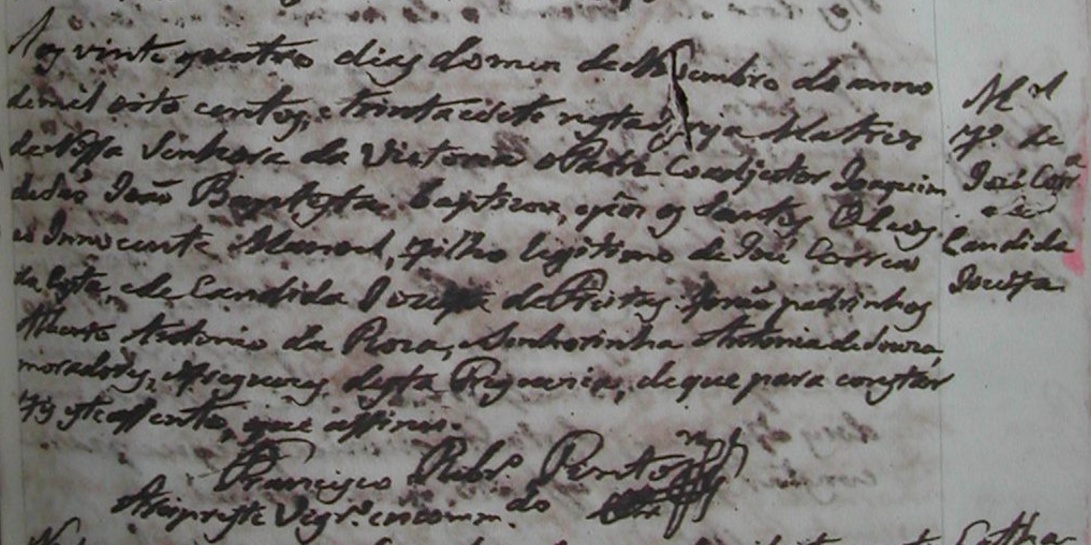 Aos vinte quatro dias do mez de Novembro do anno
de mil oito centos, e trinta e sete nesta Igreja Matriz
de Nossa Senhora da Victoria o Padre Coadjuctor Joaquim
de São João Baptysta baptizou, e pôs os Santos Oleos
ao Innocente Manoel, filho legitimo de José Correa
da Costa, e de Candida Jozefa de Freitas: forão padrinhos
Alberto Antonio da Roza, e Senhorinha Antonia de Souza,
moradores, e freguezes desta Freguezia, de que para constar
fis este assento, que assino.
Francisco Ribr.º Pinto
Arcipreste Vigr.º encomm.do
M.el
f.º de
José Corr.a
e de
Candida
Jozefa